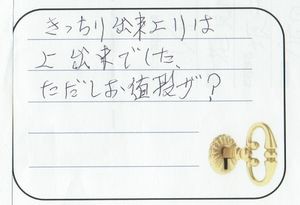 きっちり出来上りは
上出来でした、
ただしお値段が?